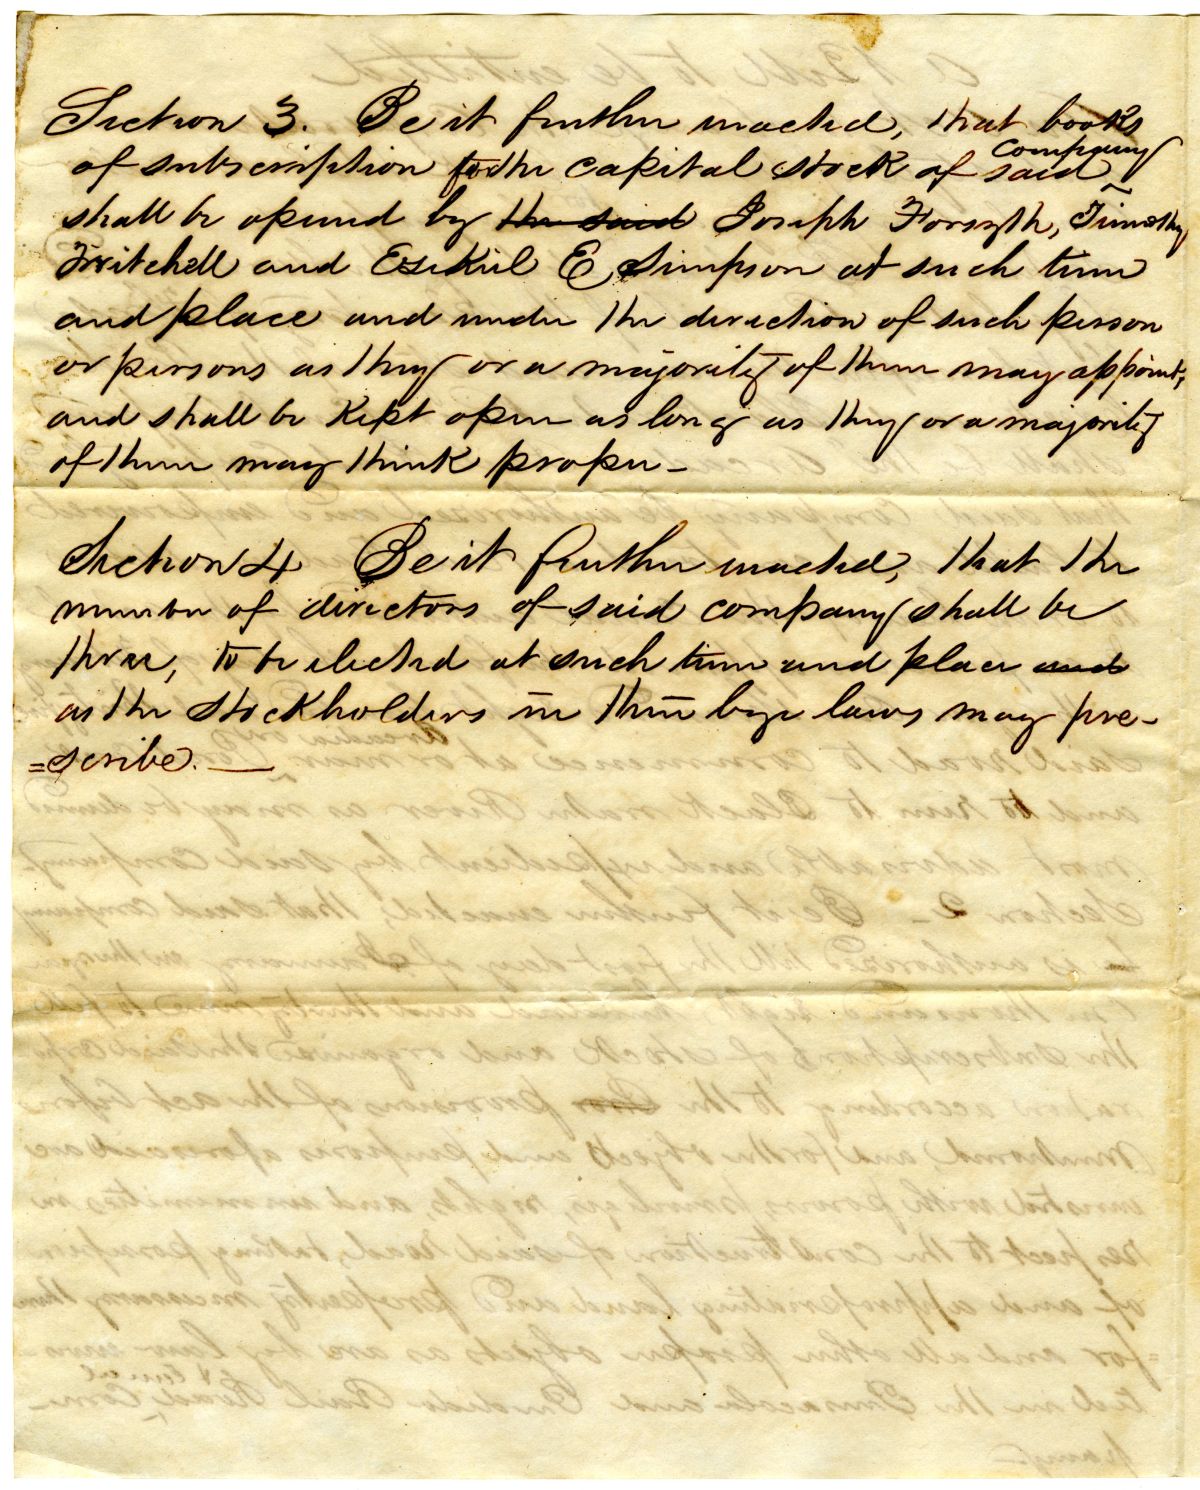 Section 3. Be it further enacted, that books
of subscription to the capital stock of said company
shall be opened by the said Joseph Forsyth, Timothy
Twitchell and Ezekiel E. Simpson at such time
and place and under the direction of such person
or persons as they or a majority of them may appoint,
and shall be kept open as long as they or a majority
of them may think proper –
Section 4 Be it further enacted, that the
number of directors of said company shall be
three, to be elected at such time and place and
as the stockholders in their bye laws may pre-
=scribe. —